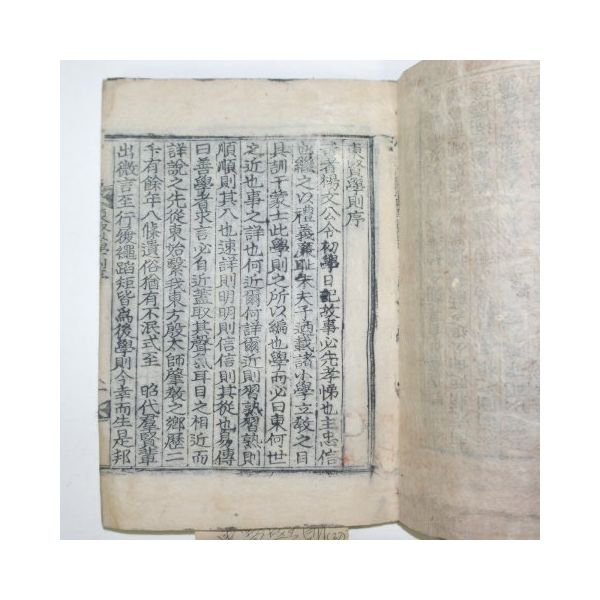 東賢學則序
昔者楊文公令初學日記故事必先孝悌也主忠信
也繼之以禮義廉恥朱夫子迺載諸小學立敎之目
具訓于蒙士此學則之所以編也學而必曰東何世
之近也事之詳也何近爾何詳爾近則習熟習熟則
順順則其入也速詳則明明則信信則其從也易傳
曰善學者其言必自近蓋取其聲氣耳目之相近而
詳說之先從東始繄我東方殷太師肇敎之鄕歷二
千有餘年八條遺俗猶有不泯式至 昭代羣賢輩
出微言至行復繩蹈矩皆爲後學則今幸而生是邦